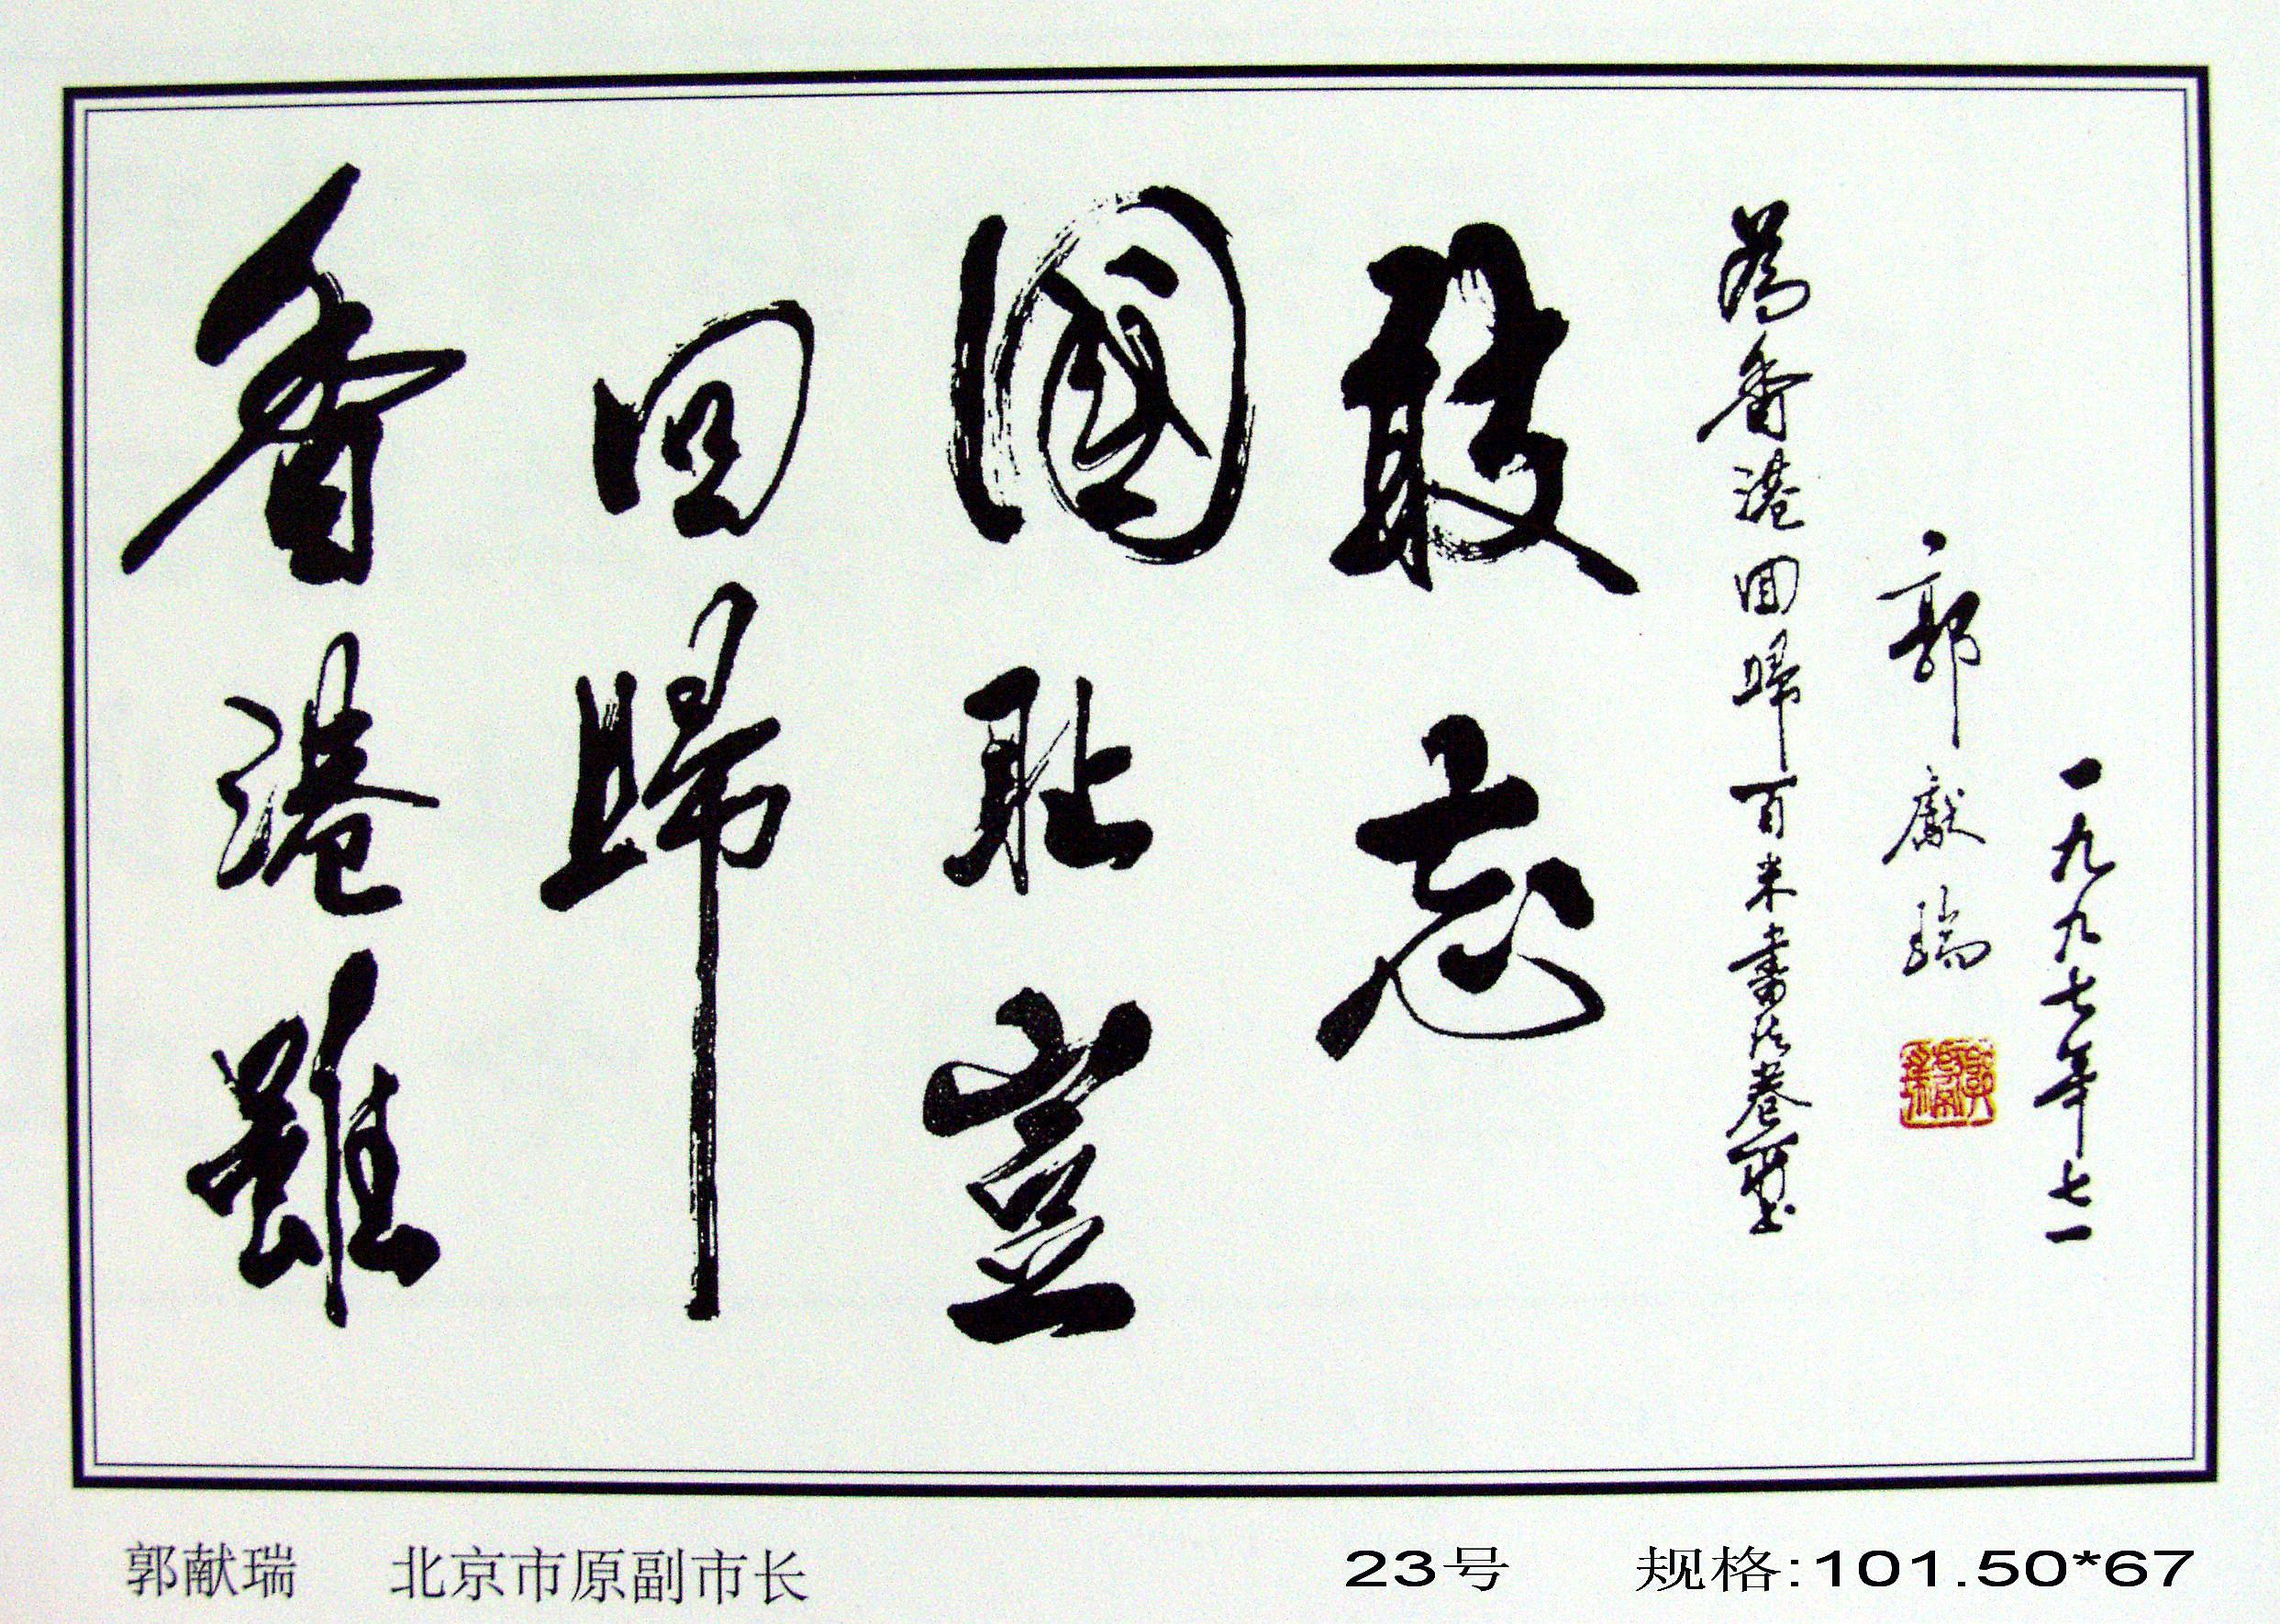 香港雖
回歸
國耻豈
敢忘
為香港回歸百米書法卷
郭獻瑞
一九九七年七一
郭献瑞 北京市原副市长 23号 规格:101.50*67